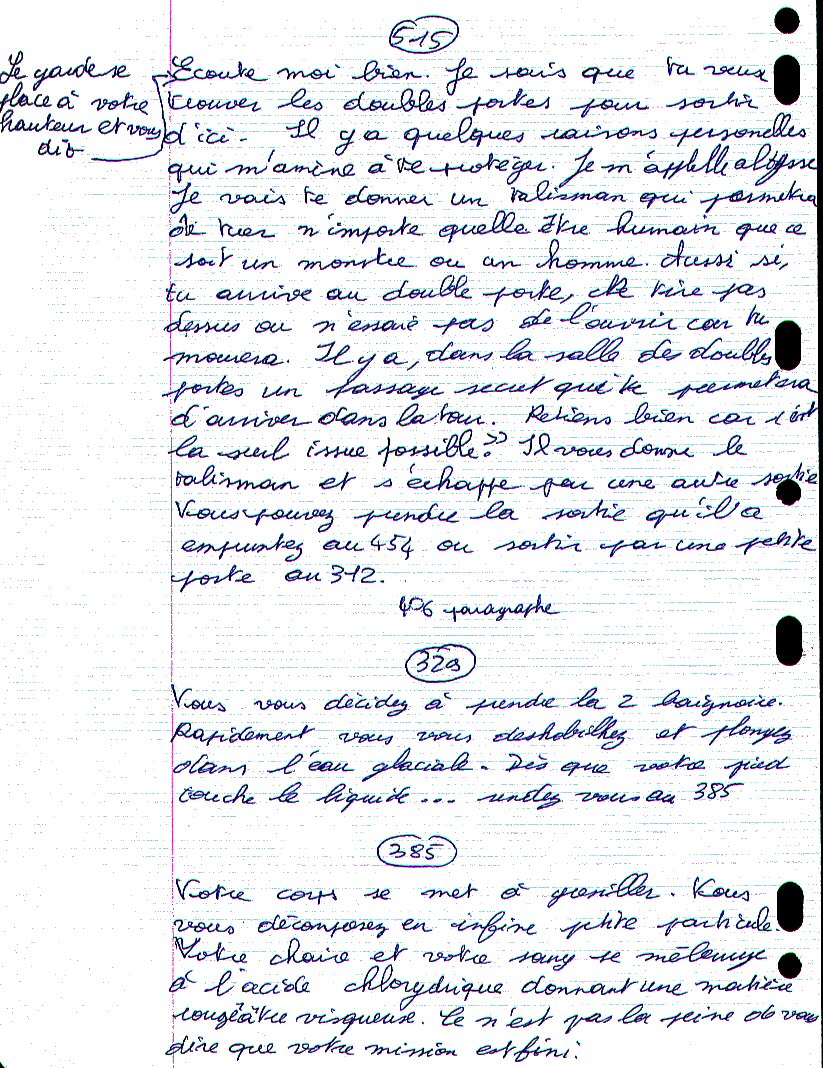 515
Le garde se
place à votre
hauteur et vous
dit
Ecoute moi bien. Je sais que tu veux
trouver les doubles portes pour sortir
d'ici. Il y a quelques raisons personelles
qui m'amène à te protéger. Je m'appelle
Je vais te donner un talisman qui permetra
de tuer n'importe quelle être humain que ce
soit un monstre ou un homme. Aussi si,
tu arrive au double porte, ne tire pas
dessus ou n'essaie pas de l'ouvrir car tu
mourera. Il y a, dans la salle des doubles
portes un passage secret qui te permetera
d'arriver dans la tour. Retiens bien car c'est
la seul issue possible. » Il vous donne le
talisman et s'échappe par une autre sortie
Vous pouvez prendre la sortie qu'il a
empruntez au 454 ou sortir par une petite
porte au 312.
406 paragraphe
329
Vous vous décidez à prendre la 2 baignoire.
Rapidement vous vous deshabilhez et plongez
dans l'eau glaciale. Dès que votre pied
touche le liquide... rendez vous au 385
385
Votre corps se met à grésiller. Vous
vous décomposez en infine ptite particule.
Votre chaire et votre sang se mélange
à l'acide chlorydrique donnant une matière
rougêatre visqueuse. Ce n'est pas la peine de vous
dire que votre mission est fini.